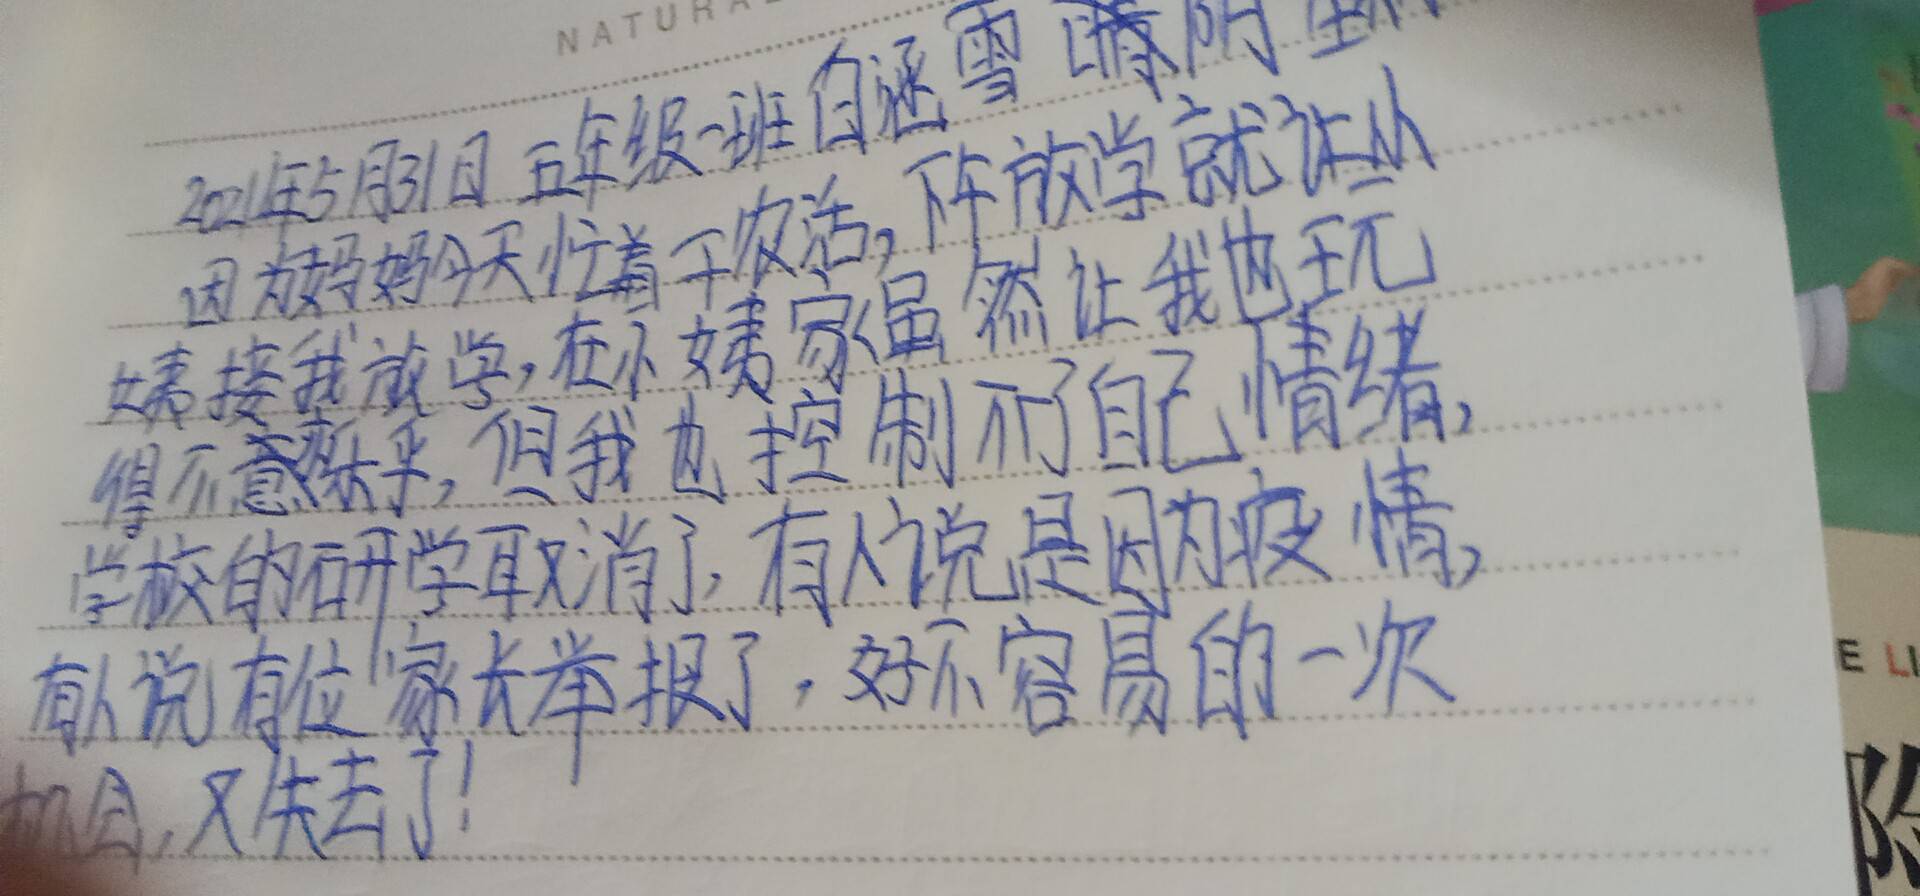 NATURA
2021年5月31日 五年级一班 白涵雪 晴 阴
因为妈妈今天忙着干农活,下午放学就让小
姨接我放学,在小姨家虽然让我也玩
得不意乐乎,但我也控制不了自己情绪,
学校的研学取消了,有人说是因为疫情,
有人说有位家长举报了,好不容易的一次
机会,又失去了!
E LI
险